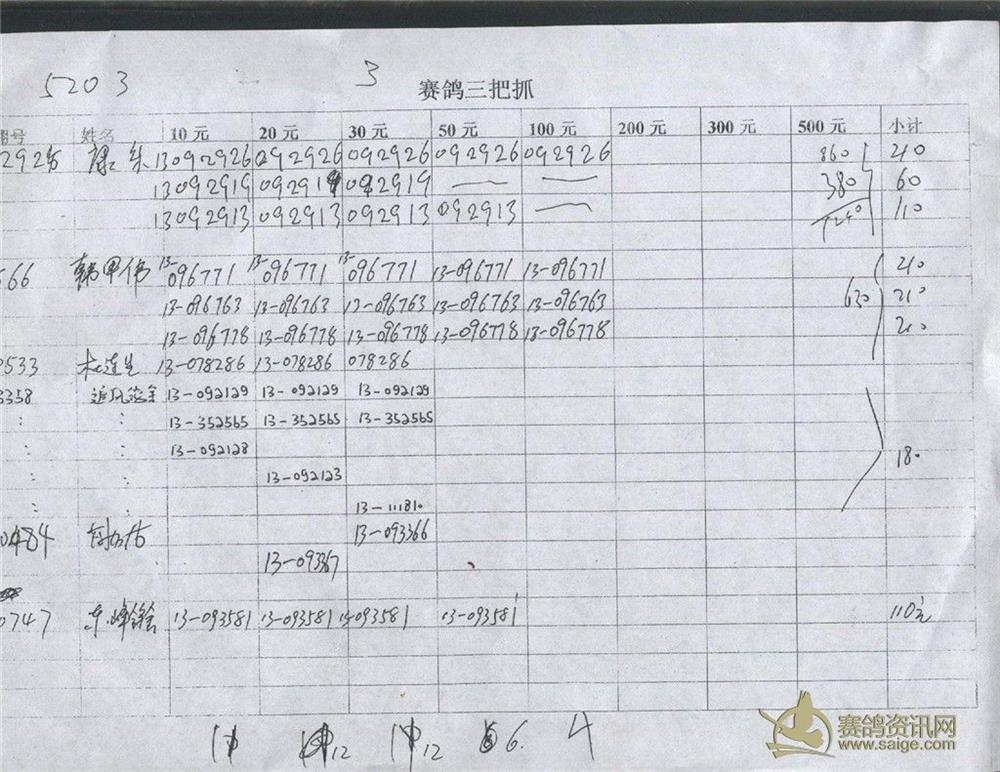 5203 3
赛鸽三把抓
姓名 10元 20元 30元 50元 100元 200元 300元 500元 小计
13092926 092926 092926 092926 092926 860 210
13092919 092919 092919 — — 380 60
13092913 092913 092913 092913 — 110
566 韩甲伟 13-096771 13-096771 13-096771 13-096771 13-096771 210
13-096763 13-096763 13-096763 13-096763 13-096763 630 210
13-096778 13-096778 13-096778 13-096778 13-096778 210
9533 杜连生 13-078286 13-078286 078286
3358 13-092129 13-092129 13-092129
: : 13-352565 13-352565 13-352565
: : 13-092128
: : 13-092123 180
: : 13-111810
0484 13-093366
13-09367
0747 13-093581 13-093581 13-093581 13-093581 110元
12 12 6. 4
赛鸽资讯网
www.saige.com